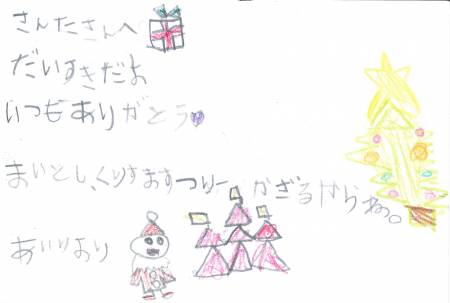 さんたさんへ
だいすきだよ
いつもありがとう
まいとし、くりすますつりーかざるからねっ。
あいりより